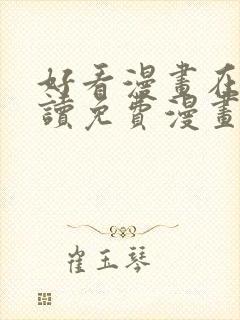 好看漫畫在
讀免費漫畫
崔玉琴